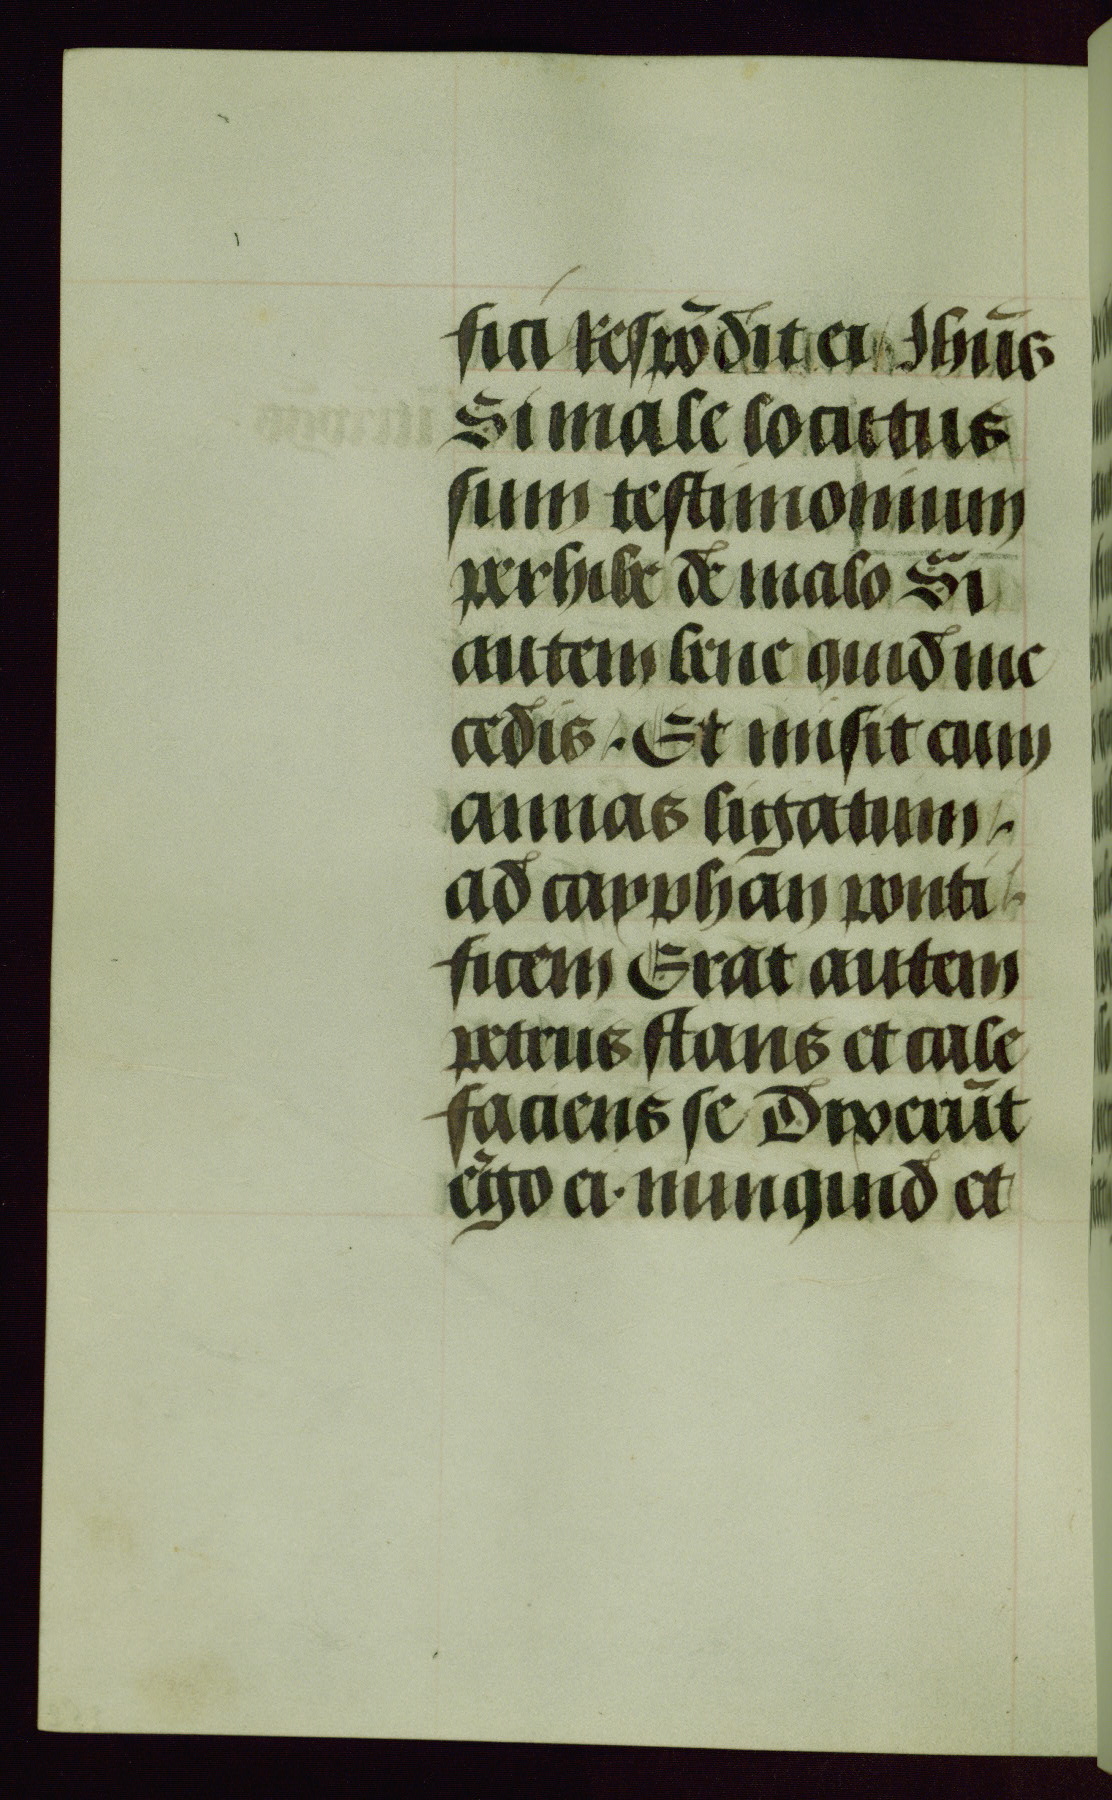 fici Respōdit ei Jhūs
Si male locutus
sum testimonium
perhibe de malo Si
autem bene quid me
cedis. Et misit eum
annas ligatum
ad cayphān ponti
ficem Erat autem
petrus stans et cale
faciens se Dixerūt
ergo ei. nunquid et